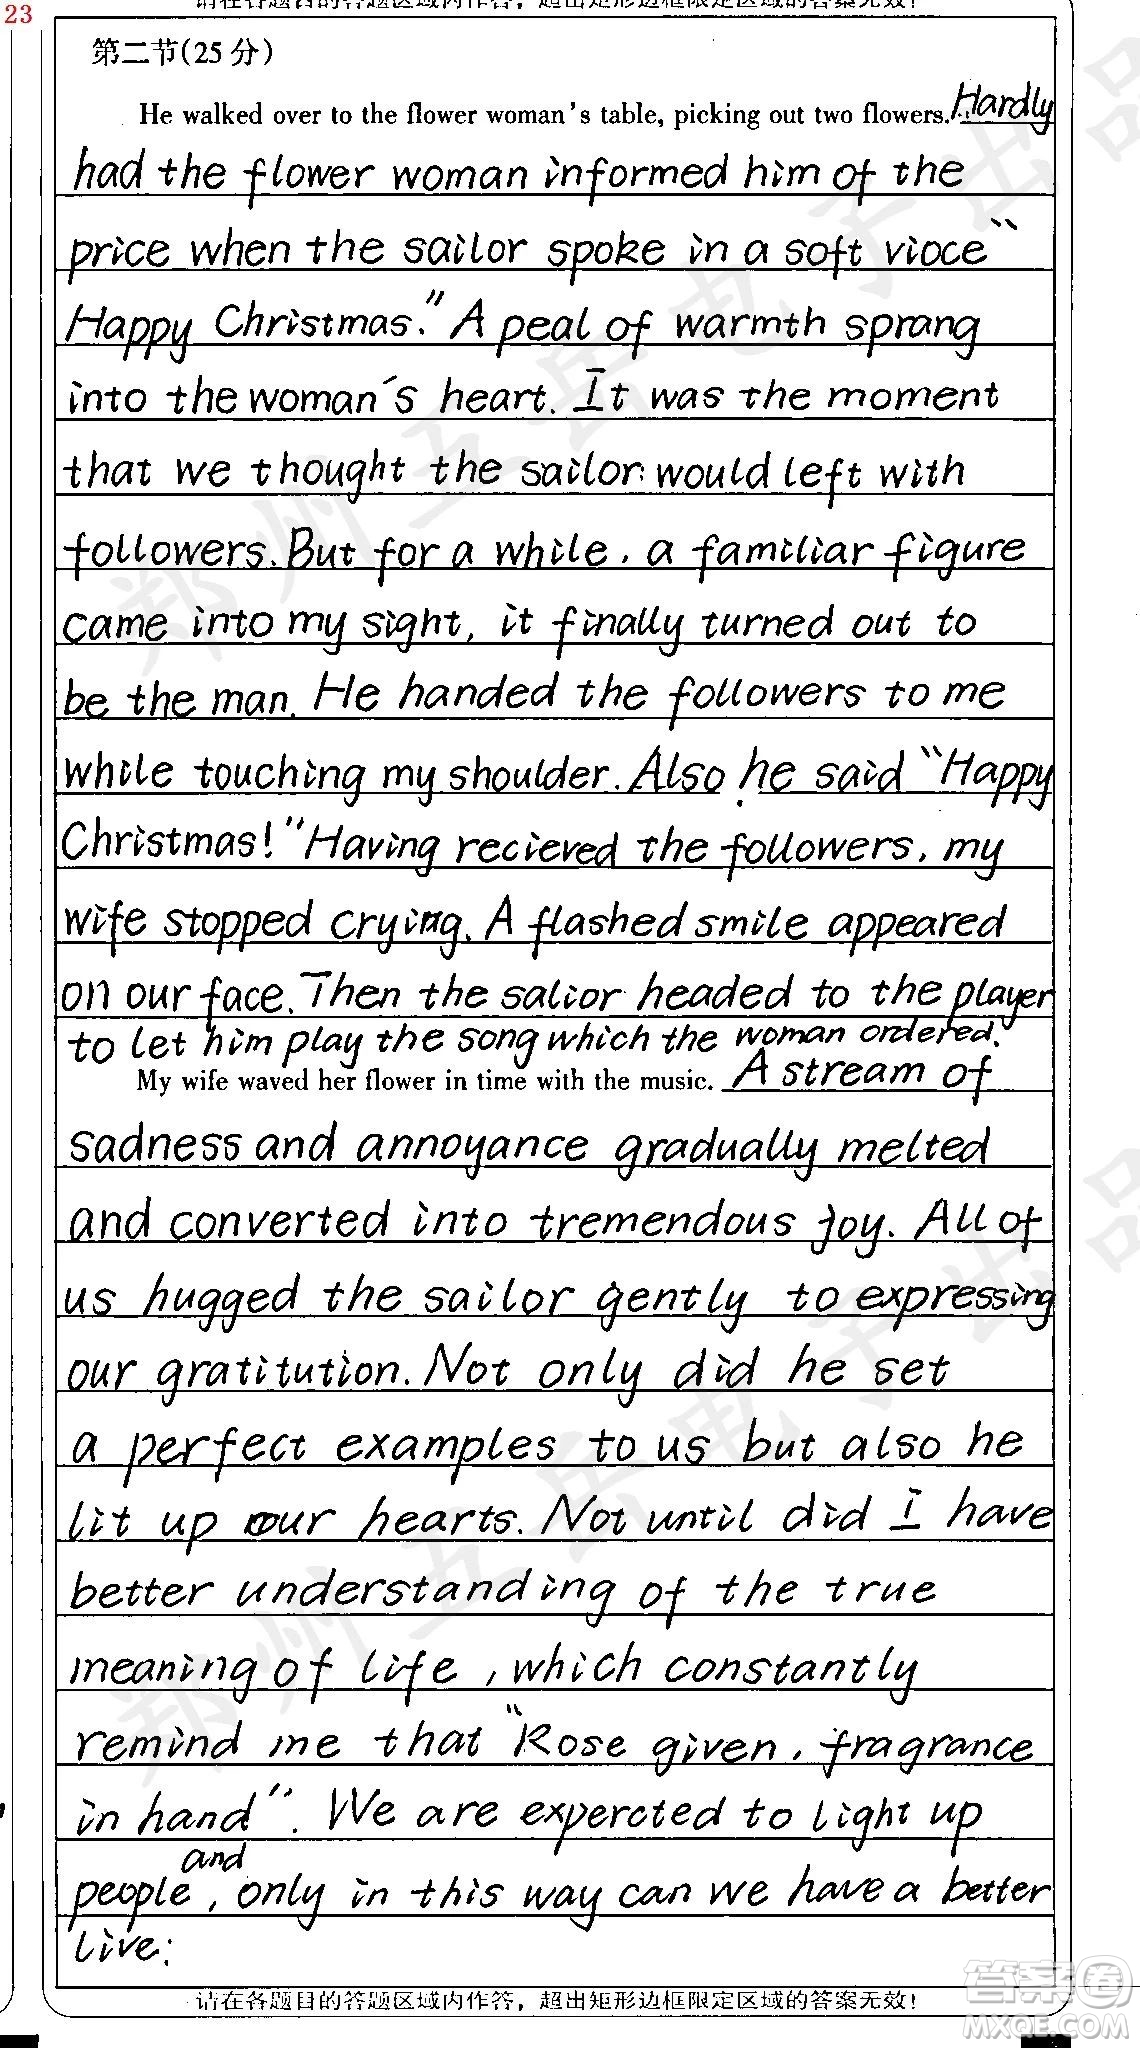 23
请在各题目的答题区域内作答，超出矩形边框限定区域的答案无效！
第二节(25 分)
He walked over to the flower woman's table, picking out two flowers. Hardly
had the flower woman informed him of the
price when the sailor spoke in a soft vioce “
Happy Christmas.” A peal of warmth sprang
into the woman's heart. It was the moment
that we thought the sailor would left with
followers. But for a while, a familiar figure
came into my sight, it finally turned out to
be the man. He handed the followers to me
while touching my shoulder. Also, he said “Happy
Christmas!” Having recieved the followers, my
wife stopped crying. A flashed smile appeared
on our face. Then the salior headed to the player
to let him play the song which the woman ordered.
My wife waved her flower in time with the music. A stream of
sadness and annoyance gradually melted
and converted into tremendous joy. All of
us hugged the sailor gently to expressing
our gratitution. Not only did he set
a perfect examples to us but also he
lit up our hearts. Not until did I have
better understanding of the true
meaning of life, which constantly
remind me that “Rose given, fragrance
in hand”. We are expercted to light up
people, and only in this way can we have a better
live.
请在各题目的答题区域内作答，超出矩形边框限定区域的答案无效！
郑州五岳电子出品
郑州五岳电子出品
答案圈
MXQE.COM